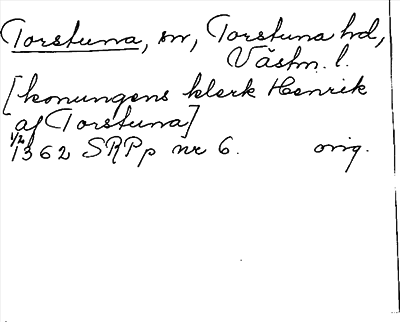 Torstuna, sn, Torstuna hd,
Västm. l.
[konungens klerk Henrik
af Torstuna]
1/2
1362 SRPp nr 6. orig.